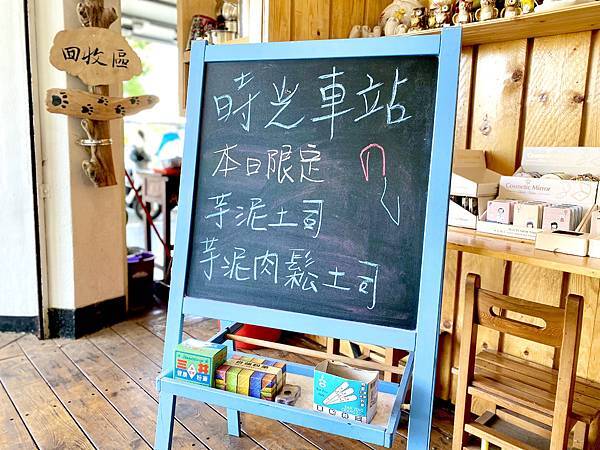 回收區
時光車站
本日限定
芋泥土司
芋泥肉鬆土司
Cosmetic Mirror